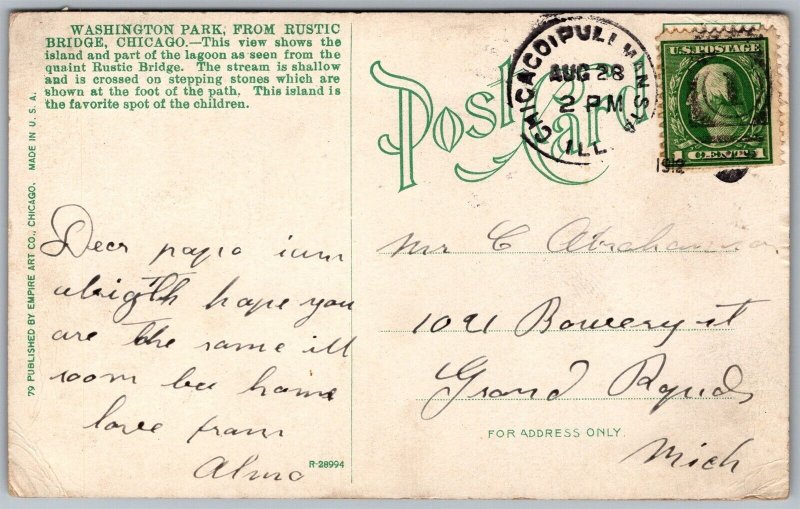 WASHINGTON PARK, FROM RUSTIC
BRIDGE, CHICAGO.—This view shows the
island and part of the lagoon as seen from the
quaint Rustic Bridge. The stream is shallow
and is crossed on stepping stones which are
shown at the foot of the path. This island is
the favorite spot of the children.
79 PUBLISHED BY EMPIRE ART CO., CHICAGO. MADE IN U. S. A.
Post Card
CHICAGO, PULLMAN STA.
AUG 28
2 PM
ILL.
1912
U.S. POSTAGE
1 CENT 1
Dear papa i um
alrigth hope you
are the same ill
soom be home
love from
Alma
R-28994
Mr C Abrahamson
1021 Bowery st
Grand Rapids
Mich
FOR ADDRESS ONLY.